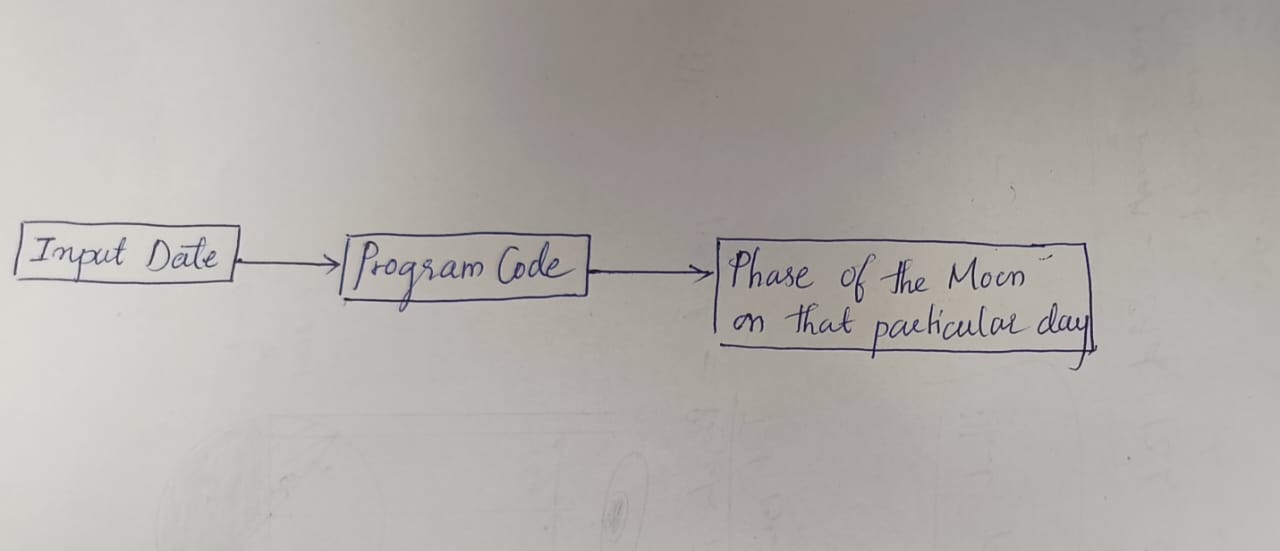 Input Date
Program Code
Phase of the Moon
on that particular day